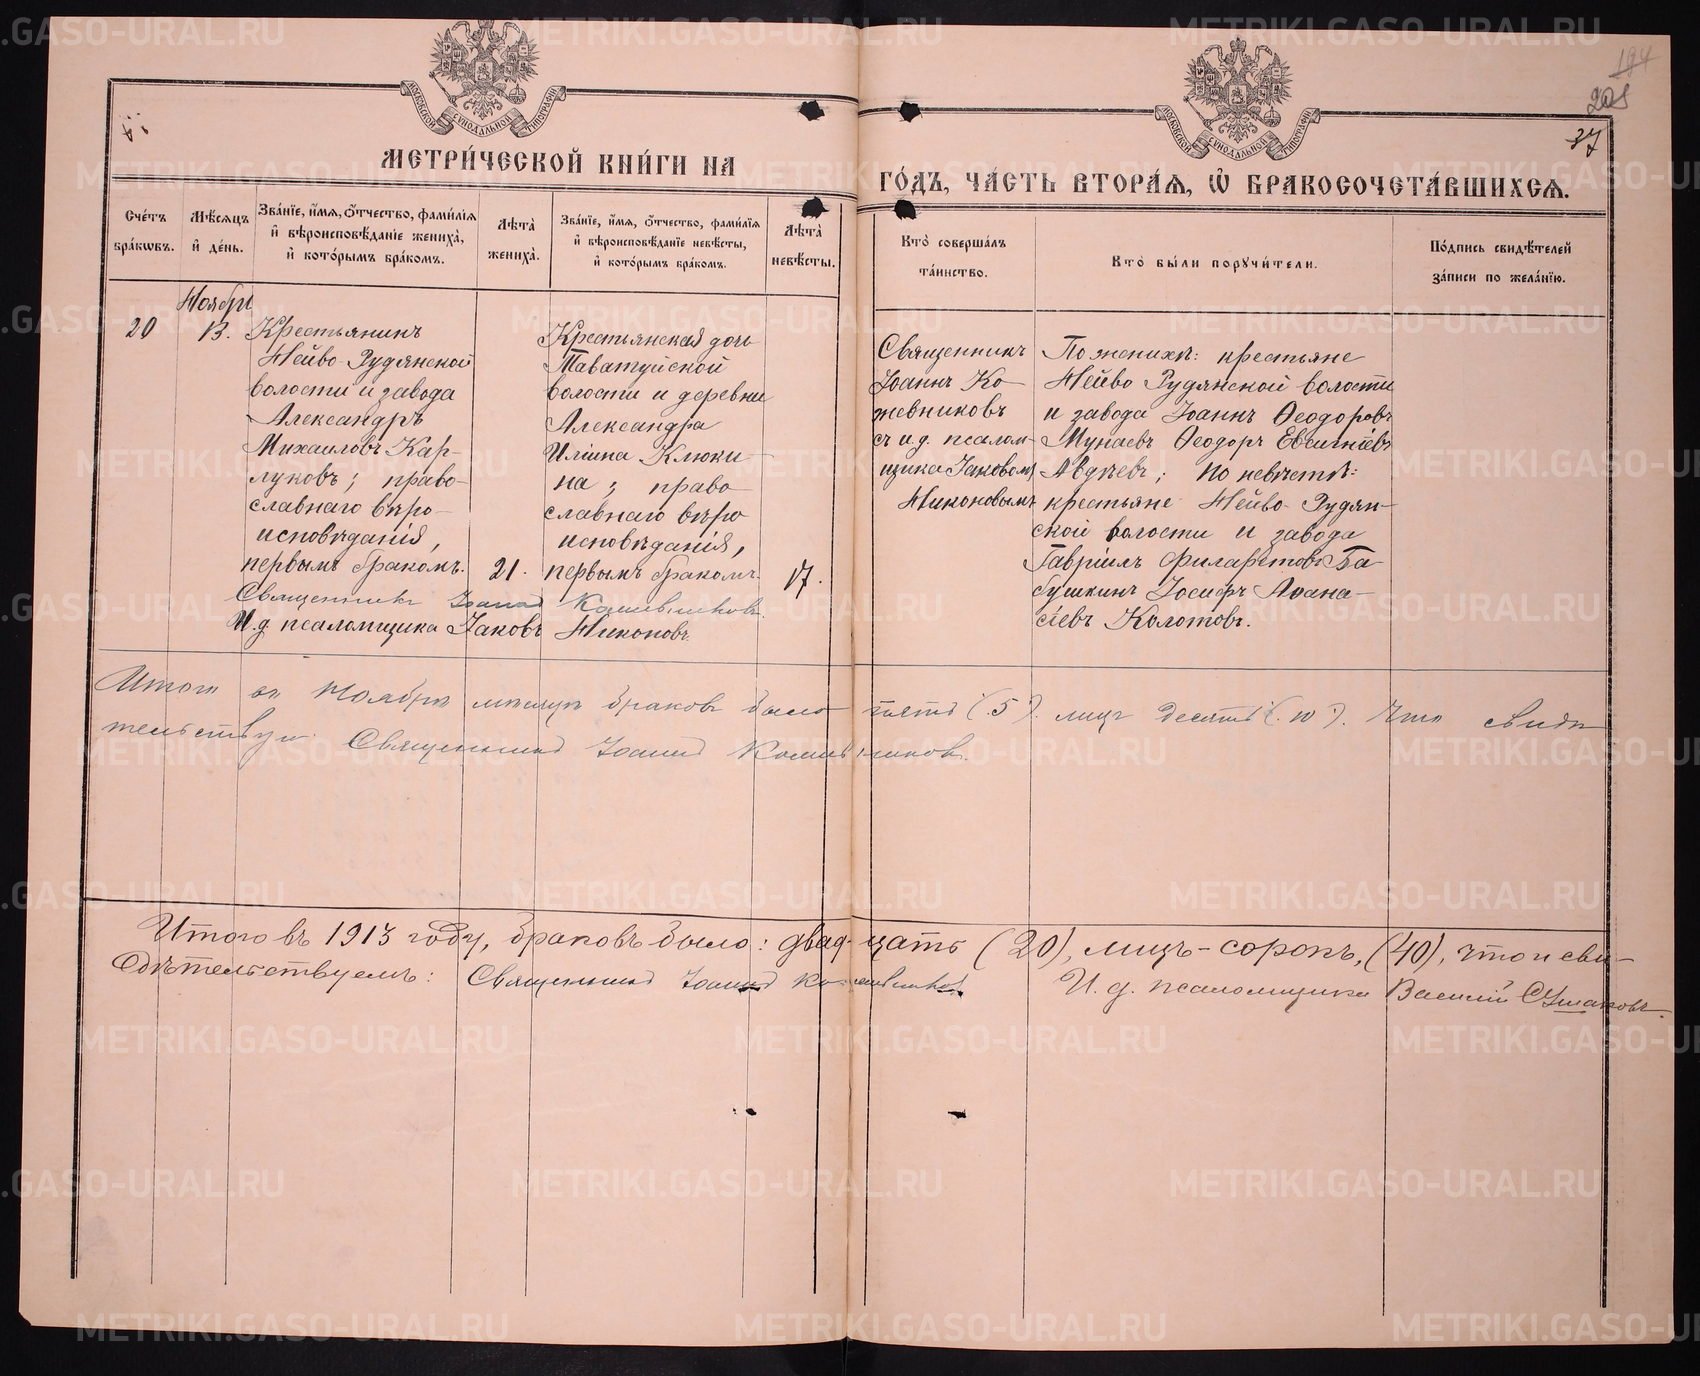 194
205
37
МОСКОВСКОЙ СѴНОДАЛЬНОЙ ТИПОГРАФІИ
МОСКОВСКОЙ СѴНОДАЛЬНОЙ ТИПОГРАФІИ
МЕТРИ́ЧЕСКОЙ КНИ́ГИ НА
ГО́ДЪ, ЧА́СТЬ ВТОРА́Ѧ, Ѡ҆ БРАКОСОЧЕТА́ВШИХСѦ.
Сче́тъ бра́кѡвъ.
Мѣ́сѧцъ и҆ де́нь.
Зва́нїе, и҆́мѧ, ѻ҆́тчество, фами́лїѧ и҆ вѣроисповѣ́данїе жениха̀, и҆ кото́рымъ бра́комъ.
Лѣ́та̀ жениха̀.
Зва́нїе, и҆́мѧ, ѻ҆́тчество, фами́лїѧ и҆ вѣроисповѣ́данїе невѣ́сты, и҆ кото́рымъ бра́комъ.
Лѣ́та̀ невѣ́сты.
Кто̀ соверша́лъ та́инство.
Кто̀ бы́ли порꙋчи́тели.
По́дпись свидѣ́телей за́писи по жела́нїю.
Ноября
20
13.
Крестьянинъ
Нейво-Рудянской
волости и завода
Александръ
Михаиловъ Кар-
луковъ; право-
славнаго вѣро-
исповѣданія,
первымъ бракомъ.
21.
Крестьянская дочь
Таватуйской
волости и деревни
Александра
Иліина Клюки-
на; право-
славнаго вѣро
исповѣданія,
первымъ бракомъ.
17.
Священникъ
Іоаннъ Ко-
жевниковъ
съ и.д. псалом-
щика Іаковомъ
Никоновымъ
По женихѣ: крестьяне
Нейво Рудянской волости
и завода Іоаннъ Ѳеодоровъ
Мунаевъ Ѳеодоръ Евсигніевъ
Авдѣевъ; По невѣстѣ:
крестьяне Нейво-Рудян-
ской волости и завода
Гавріилъ Филаретовъ Ба-
бушкинъ Іосифъ Аѳана-
сіевъ Колотовъ.
Священникъ Іоаннъ Кожевниковъ.
И.д. псаломщика Іаковъ Никоновъ.
Итого въ Ноябрѣ мѣсяцѣ браковъ было пять (5). лицъ десять (10). Что свидѣ-
тельствую. Священникъ Іоаннъ Кожевниковъ.
Итого въ 1913 году, браковъ было: двадцать (20), лицъ-сорокъ, (40), что и сви-
дѣтельствуемъ: Священникъ Іоаннъ Кожевниковъ
И. д. псаломщика Василій Сушаковъ.
METRIKI.GASO-URAL.RU